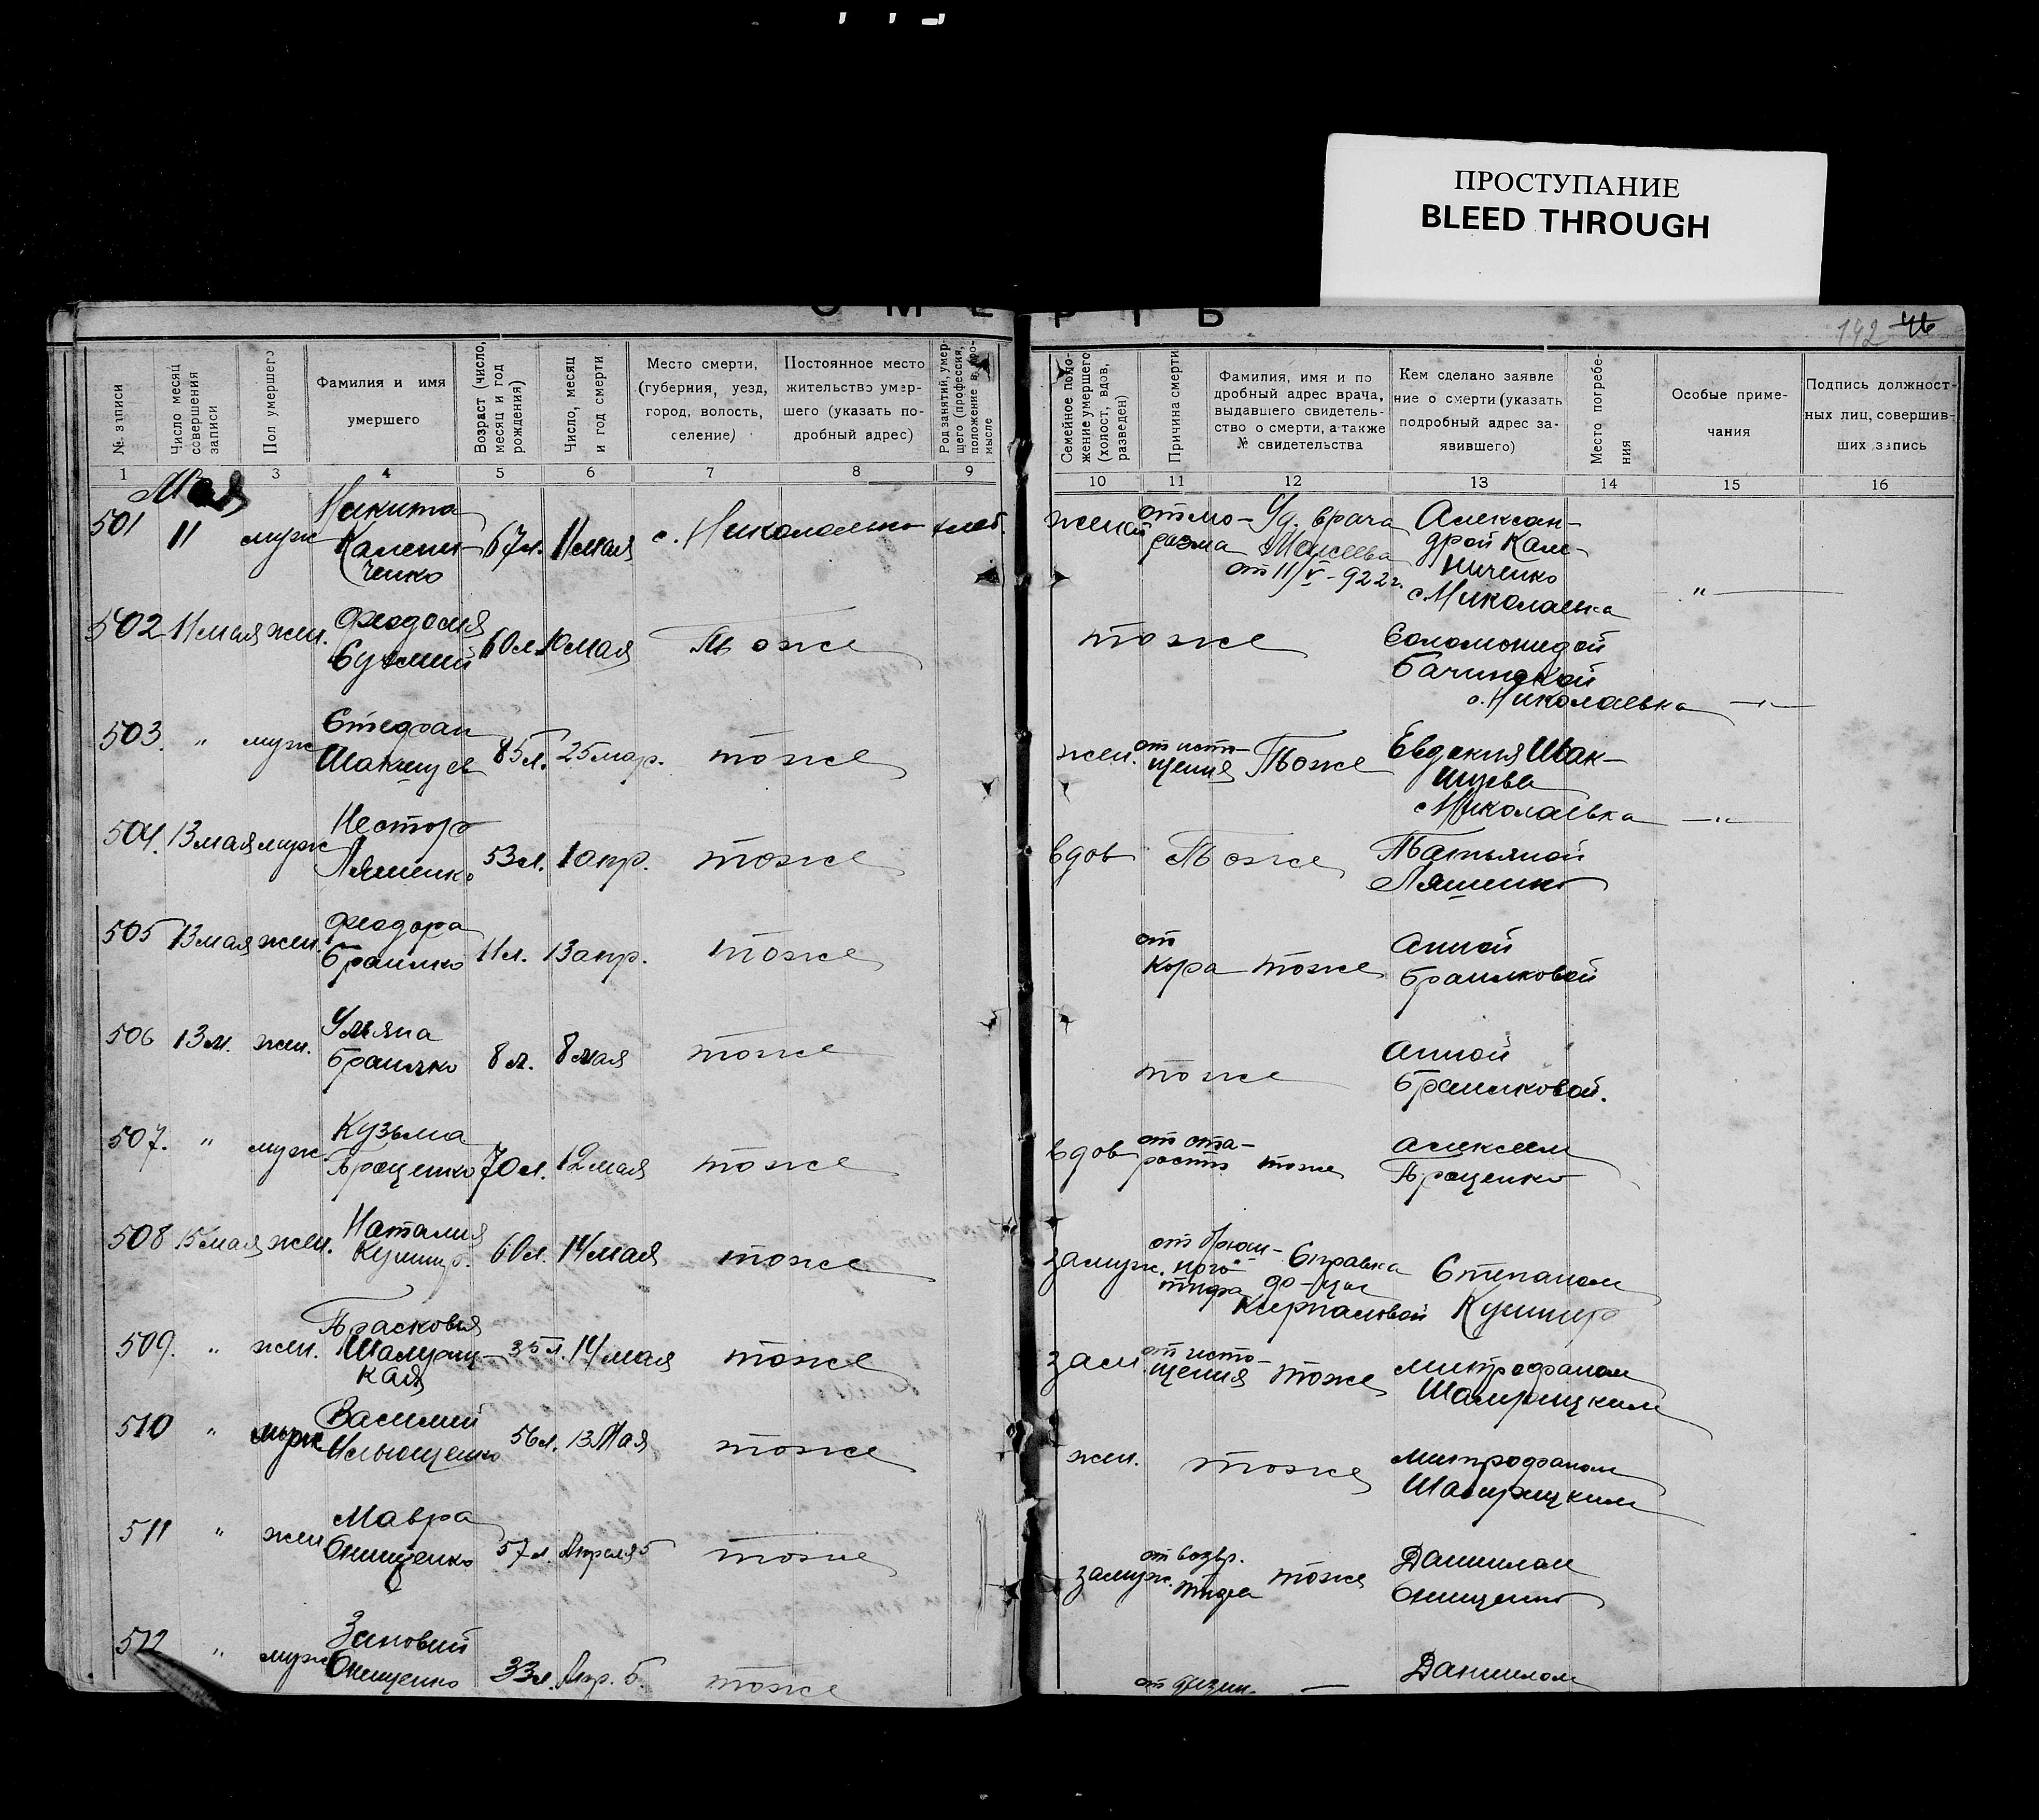 ПРОСТУПАНИЕ
BLEED THROUGH
С М Е Р Т Ь
142
№ записи
Число месяц совершения записи
Пол умершего
Фамилия и имя
умершего
Возраст (число, месяц и год рождения)
Число, месяц и год смерти
Место смерти,
(губерния, уезд,
город, волость,
селение)
Постоянное место
жительство умер-
шего (указать по-
дробный адрес)
Род занятий, умер-
щего (профессия,
положение в про-
мысле
Семейное поло-
жение умершего
(холост, вдов,
разведен)
Причина смерти
Фамилия, имя и по
дробный адрес врача,
выдавшего свидетель-
ство о смерти, а также
№ свидетельства
Кем сделано заявле
ние о смерти (указать
подробный адрес за-
явившего)
Место погребе-
ния
Особые приме-
чания
Подпись должност-
ных лиц, совершив-
ших запись
1 3 4 5 6 7 8 9 10 11 12 13 14 15 16
Мая
501 11 муж Никита
Калени-
ченко
67 л. 11 мая с. Николаевка хлеб.
женат от мо-
розма
Уд. врача
Моисеева
от 11/V-922 г.
Алексан-
дрой Кале-
ниченко
с. Николаевка
"
502 11 мая жен. Феодосия
60 л. 10 мая тоже
тоже
Соломонидой
Бачинской
с. Николаевка
503. " муж Стефан
Шакшуев
85 л. 25 мар. тоже
жен. от исто-
щения
Тоже
Евдокия Шак-
шуева
с. Николаевка
504. 13 мая муж Нестор
Ляшенко
53 л. 1 апр. тоже
вдов Тоже
Татьяной
Ляшенко
505 13 мая жен. Феодора
Браилко
11 л. 13 апр. тоже
от
кора
тоже
Анной
Браилковой
506 13 м. жен. Ульяна
Браилко
8 л. 8 мая тоже
тоже
Анной
Браилковой.
507. " муж. Кузьма
Проценко
70 л. 12 мая тоже
вдов от ста-
рости
тоже
Алексеем
Проценко
508 15 мая жен. Наталия
Кушнир.
60 л. 14 мая тоже
замуж. от брюш-
ного
тифа
Справка
Степаном
Кушнир
509. " жен. Прасковия
Шамриц-
кая
35 л. 14 мая тоже
зам от исто-
щения
тоже
Митрофаном
Шамрицким
510 " муж Василий
Ильющенко
56 л. 13 Мая тоже
жен. тоже
Митрофаном
Шамрицким
511 " жен Мавра
Онищенко
57 л. Апреля 5 тоже
замуж. от возвр.
тифа
тоже
Данилом
Онищенко
512 " муж Зиновий
Онищенко
33 л. Апр. 5. тоже
Данилом